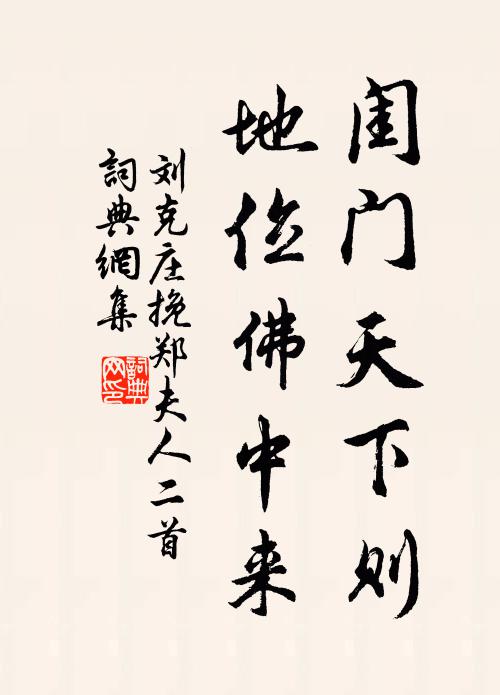 闺门天下则
地位佛中来
刘克庄挽郑夫人二首
詞典網集
詞典
网印